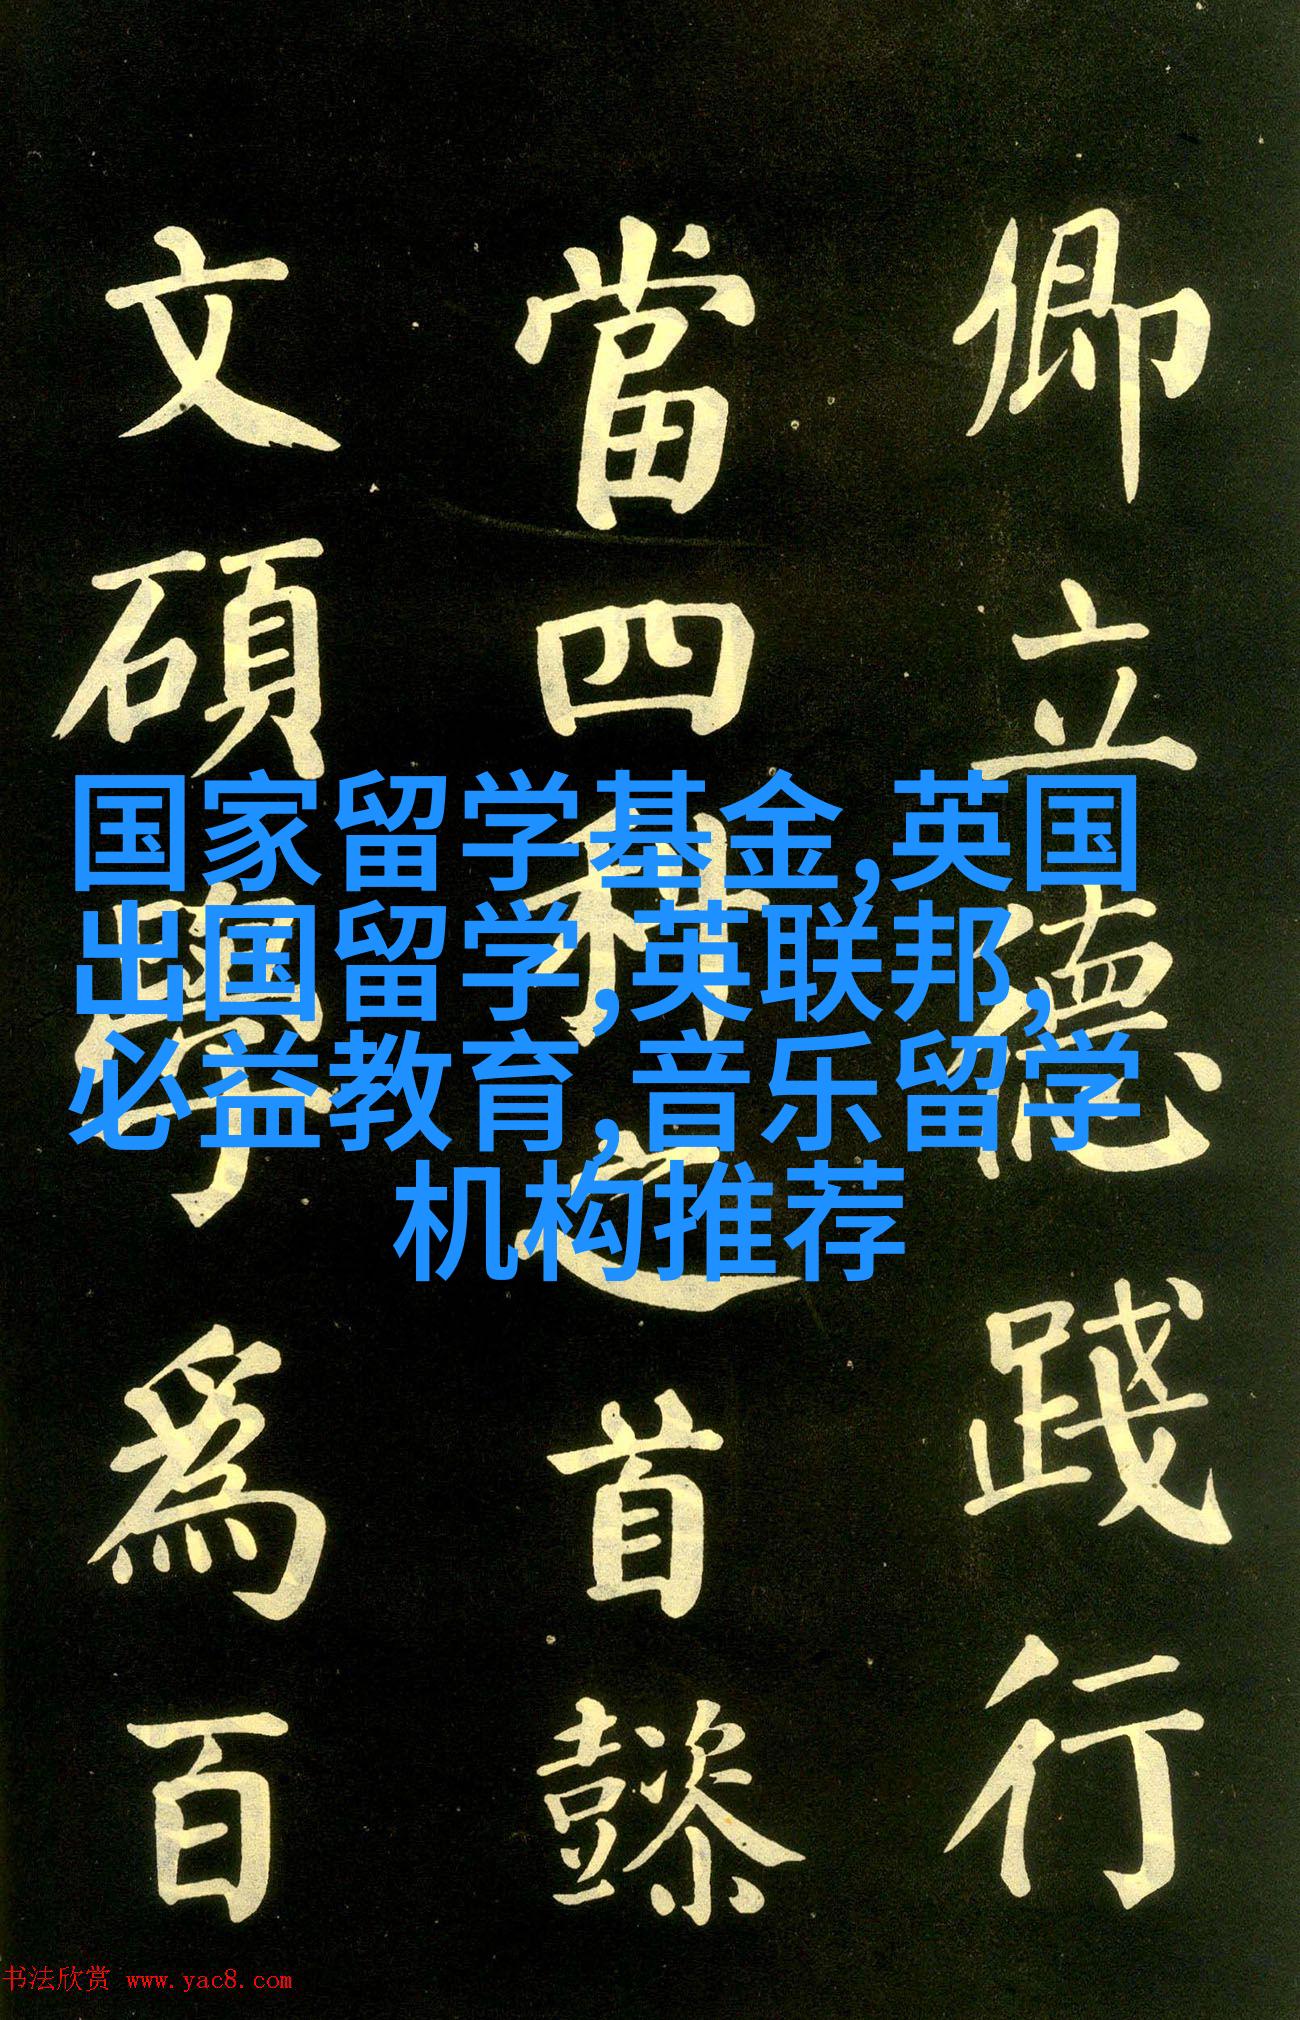 卿立德踐行
當四科之首懿
文碩學為百
国家留学基金,英国
出国留学,英联邦,
必益教育,音乐留学
机构推荐
书法欣赏 www.yac8.com